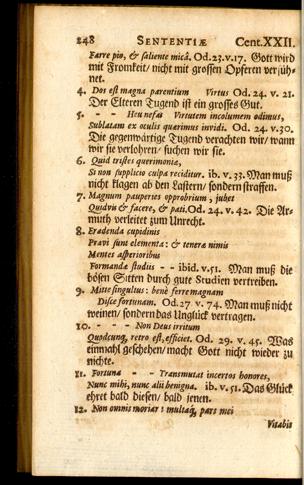 248 SENTENTIÆ Cent.XXII.
Farre pio, & saliente micâ. Od.23.v.17. Gott wird
mit Fromkeit/ nicht mit grossen Opferen versüh-
net.
4. Dos est magna parentium Virtus Od. 24. v. 21.
Der Elteren Tugend ist ein grosses Gut.
5. - - Heu nefas Virtutem incolumem odimus,
Sublatam ex oculis quærimus invidi. Od. 24. v.30.
Die gegenwärtige Tugend verachten wir/ wann
wir sie verlohren/ suchen wir sie.
6. Quid tristes querimoniæ,
Si non supplicio culpa reciditur. ib. v. 33. Man muß
nicht klagen ab den Lastern/ sondern straffen.
7. Magnum pauperies opprobrium, jubet
Quidvis & facere, & pati. Od. 24. v. 42. Die Ar-
muth verleitet zum Unrecht.
8. Eradenda cupidinis
Pravi sunt elementa: & teneræ nimis
Mentes asperioribus
Formandæ studiis - - ibid. v.51. Man muß die
bösen Sitten durch gute Studien vertreiben.
9. Mitte singultus: benè ferre magnam
Disce fortunam. Od.27 v. 74. Man muß nicht
weinen/ sondern das Unglück vertragen.
10. - - - Non Deus irritum
Quodcunq, retro est, efficiet. Od. 29. v. 45. Was
einmahl geschehen/ macht Gott nicht wieder zu
nichte.
11. Fortuna - - Transmutat incertos honores,
Nunc mihi, nunc alii benigna. ib. v. 51. Das Glück
ehret bald diesen/ bald jenen.
12. Non omnis moriar: multaq́, pars mei
Vitabit